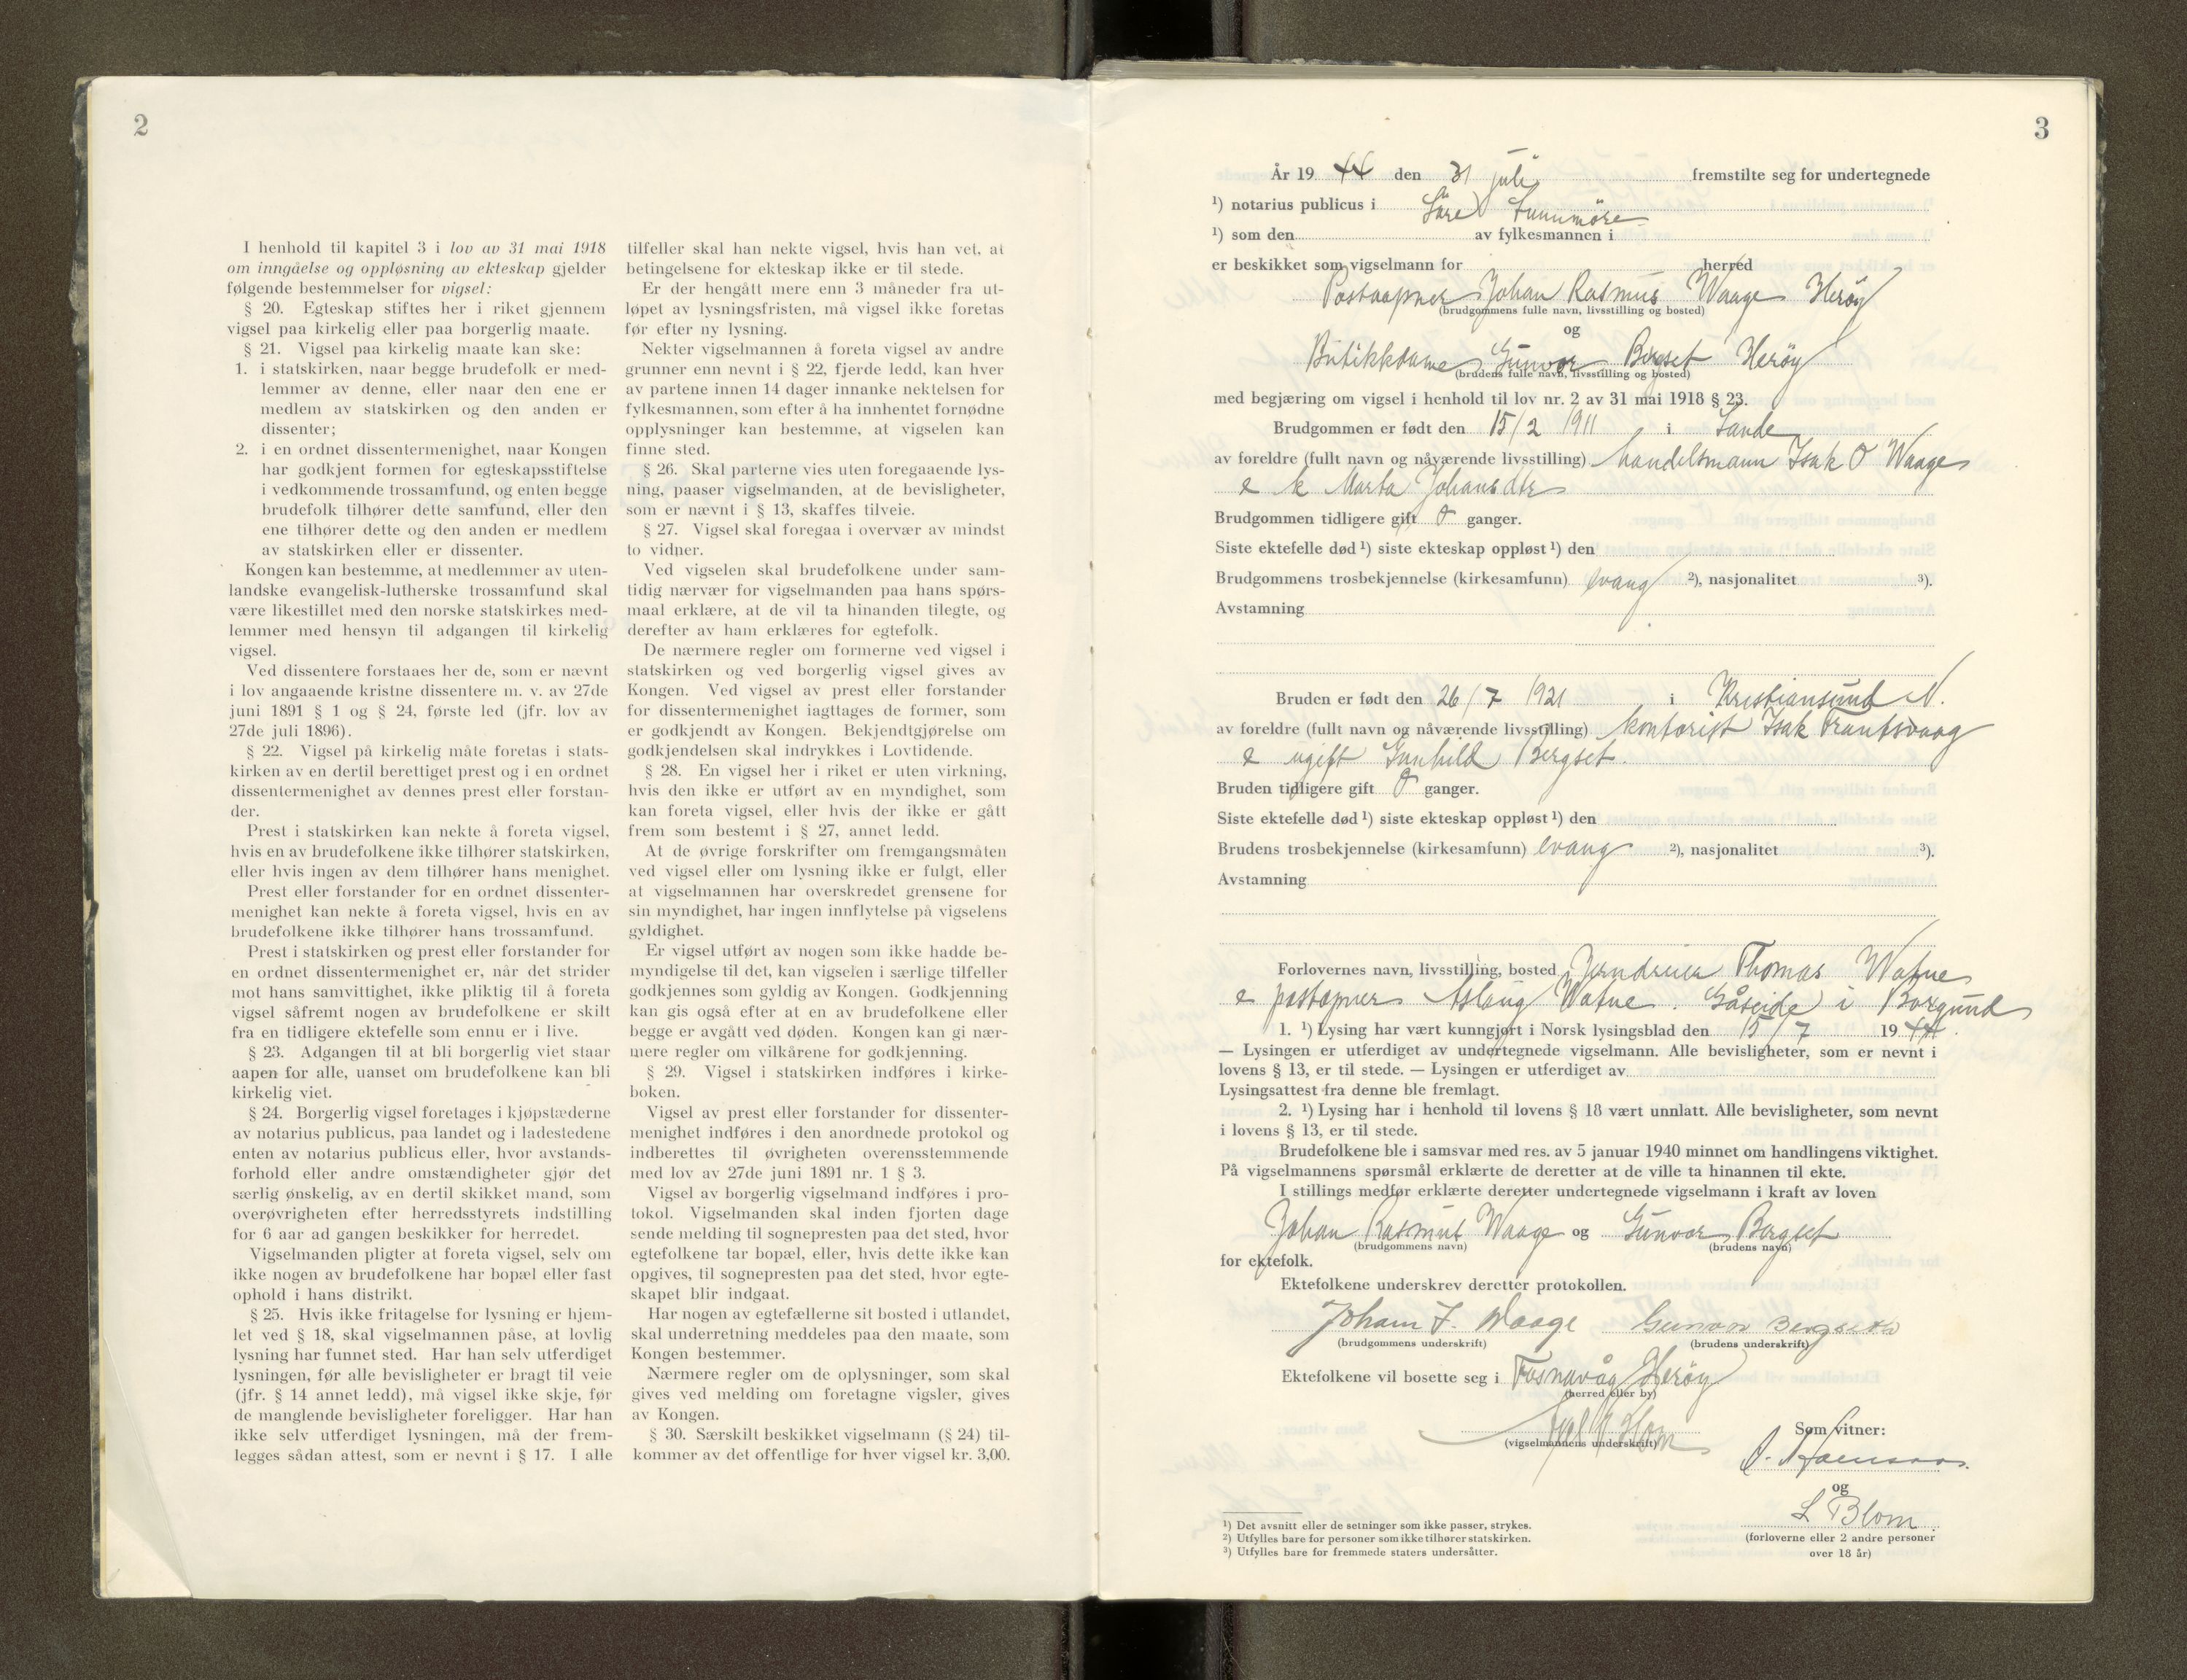 2
I henhold til kapitel 3 i lov av 31 mai 1918
om inngåelse og oppløsning av ekteskap gjelder
følgende bestemmelser for vigsel:
§ 20. Egteskap stiftes her i riket gjennem
vigsel paa kirkelig eller paa borgerlig maate.
§ 21. Vigsel paa kirkelig maate kan ske:
1. i statskirken, naar begge brudefolk er med-
lemmer av denne, eller naar den ene er
medlem av statskirken og den anden er
dissenter;
2. i en ordnet dissentermenighet, naar Kongen
har godkjent formen for egteskapsstiftelse
i vedkommende trossamfund, og enten begge
brudefolk tilhører dette samfund, eller den
ene tilhører dette og den anden er medlem
av statskirken eller er dissenter.
Kongen kan bestemme, at medlemmer av uten-
landske evangelisk-lutherske trossamfund skal
være likestillet med den norske statskirkes med-
lemmer med hensyn til adgangen til kirkelig
vigsel.
Ved dissentere forstaaes her de, som er nævnt
i lov angaaende kristne dissentere m. v. av 27de
juni 1891 § 1 og § 24, første led (jfr. lov av
27de juli 1896).
§ 22. Vigsel på kirkelig måte foretas i stats-
kirken av en dertil berettiget prest og i en ordnet
dissentermenighet av dennes prest eller forstan-
der.
Prest i statskirken kan nekte å foreta vigsel,
hvis en av brudefolkene ikke tilhører statskirken,
eller hvis ingen av dem tilhører hans menighet.
Prest eller forstander for en ordnet dissenter-
menighet kan nekte å foreta vigsel, hvis en av
brudefolkene ikke tilhører hans trossamfund.
Prest i statskirken og prest eller forstander for
en ordnet dissentermenighet er, når det strider
mot hans samvittighet, ikke pliktig til å foreta
vigsel såfremt nogen av brudefolkene er skilt
fra en tidligere ektefelle som ennu er i live.
§ 23. Adgangen til at bli borgerlig viet staar
aapen for alle, uanset om brudefolkene kan bli
kirkelig viet.
§ 24. Borgerlig vigsel foretages i kjøpstæderne
av notarius publicus, paa landet og i ladestedene
enten av notarius publicus eller, hvor avstands-
forhold eller andre omstændigheter gjør det
særlig ønskelig, av en dertil skikket mand, som
overøvrigheten efter herredsstyrets indstilling
for 6 aar ad gangen beskikker for herredet.
Vigselmanden pligter at foreta vigsel, selv om
ikke nogen av brudefolkene har bopæl eller fast
ophold i hans distrikt.
§ 25. Hvis ikke fritagelse for lysning er hjem-
let ved § 18, skal vigselmannen påse, at lovlig
lysning har funnet sted. Har han selv utferdiget
lysningen, før alle bevisligheter er bragt til veie
(jfr. § 14 annet ledd), må vigsel ikke skje, før
de manglende bevisligheter foreligger. Har han
ikke selv utferdiget lysningen, må der frem-
legges sådan attest, som er nevnt i § 17. I alle
tilfeller skal han nekte vigsel, hvis han vet, at
betingelsene for ekteskap ikke er til stede.
Er der hengått mere enn 3 måneder fra ut-
løpet av lysningsfristen, må vigsel ikke foretas
før efter ny lysning.
Nekter vigselmannen å foreta vigsel av andre
grunner enn nevnt i § 22, fjerde ledd, kan hver
av partene innen 14 dager innanke nektelsen for
fylkesmannen, som efter å ha innhentet fornødne
opplysninger kan bestemme, at vigselen kan
finne sted.
§ 26. Skal parterne vies uten foregaaende lys-
ning, paaser vigselmanden, at de bevisligheter,
som er nævnt i § 13, skaffes tilveie.
§ 27. Vigsel skal foregaa i overvær av mindst
to vidner.
Ved vigselen skal brudefolkene under sam-
tidig nærvær for vigselmanden paa hans spørs-
maal erklære, at de vil ta hinanden tilegte, og
derefter av ham erklæres for egtefolk.
De nærmere regler om formerne ved vigsel i
statskirken og ved borgerlig vigsel gives av
Kongen. Ved vigsel av prest eller forstander
for dissentermenighet iagttages de former, som
er godkjendt av Kongen. Bekjendtgjørelse om
godkjendelsen skal indrykkes i Lovtidende.
§ 28. En vigsel her i riket er uten virkning,
hvis den ikke er utført av en myndighet, som
kan foreta vigsel, eller hvis der ikke er gått
frem som bestemt i § 27, annet ledd.
At de øvrige forskrifter om fremgangsmåten
ved vigsel eller om lysning ikke er fulgt, eller
at vigselmannen har overskredet grensene for
sin myndighet, har ingen innflytelse på vigselens
gyldighet.
Er vigsel utført av nogen som ikke hadde be-
myndigelse til det, kan vigselen i særlige tilfeller
godkjennes som gyldig av Kongen. Godkjenning
kan gis også efter at en av brudefolkene eller
begge er avgått ved døden. Kongen kan gi nær-
mere regler om vilkårene for godkjenning.
§ 29. Vigsel i statskirken indføres i kirke-
boken.
Vigsel av prest eller forstander for dissenter-
menighet indføres i den anordnede protokol og
indberettes til øvrigheten overensstemmende
med lov av 27de juni 1891 nr. 1 § 3.
Vigsel av borgerlig vigselmand indføres i pro-
tokol. Vigselmanden skal inden fjorten dage
sende melding til sognepresten paa det sted, hvor
egtefolkene tar bopæl, eller, hvis dette ikke kan
opgives, til sognepresten paa det sted, hvor egte-
skapet blir indgaat.
Har nogen av egtefællerne sit bosted i utlandet,
skal underretning meddeles paa den maate, som
Kongen bestemmer.
Nærmere regler om de oplysninger, som skal
gives ved melding om foretagne vigsler, gives
av Kongen.
§ 30. Særskilt beskikket vigselmann (§ 24) til-
kommer av det offentlige for hver vigsel kr. 3,00.
3
År 19 44 den 31 juli fremstilte seg for undertegnede
1) notarius publicus i Søre Sunnmøre
1) som den av fylkesmannen i
er beskikket som vigselmann for herred
Postaapner Johan Rasmus Waage Herøy
(brudgommens fulle navn, livsstilling og bosted)
og
Butikkdame Gunvor Bergset Herøy
(brudens fulle navn, livsstilling og bosted)
med begjæring om vigsel i henhold til lov nr. 2 av 31 mai 1918 § 23.
Brudgommen er født den 15/2 1911 i Sande
av foreldre (fullt navn og nåværende livsstilling) handelsmann Isak O Waage
e k Marta Johansdtr
Brudgommen tidligere gift 0 ganger.
Siste ektefelle død 1) siste ekteskap oppløst 1) den
Brudgommens trosbekjennelse (kirkesamfunn) evang 2), nasjonalitet 3).
Avstamning
Bruden er født den 26/7 1921 i Kristiansund N.
av foreldre (fullt navn og nåværende livsstilling) kontorist Isak Frantsvaag
e ugift Gunhild Bergset.
Bruden tidligere gift 0 ganger.
Siste ektefelle død 1) siste ekteskap oppløst 1) den
Brudens trosbekjennelse (kirkesamfunn) evang 2), nasjonalitet 3).
Avstamning
Forlovernes navn, livsstilling, bosted Jerndreier Thomas Watne
e postopner Aslaug Watne. Gåseide i Borgund
1. 1) Lysing har vært kunngjort i Norsk lysingsblad den 15/7 1944.
— Lysingen er utferdiget av undertegnede vigselmann. Alle bevisligheter, som er nevnt i
lovens § 13, er til stede. — Lysingen er utferdiget av
Lysingsattest fra denne ble fremlagt.
2. 1) Lysing har i henhold til lovens § 18 vært unnlatt. Alle bevisligheter, som nevnt
i lovens § 13, er til stede.
Brudefolkene ble i samsvar med res. av 5 januar 1940 minnet om handlingens viktighet.
På vigselmannens spørsmål erklærte de deretter at de ville ta hinannen til ekte.
I stillings medfør erklærte deretter undertegnede vigselmann i kraft av loven
Johan Rasmus Waage og Gunvor Bergset
(brudgommens navn) (brudens navn)
for ektefolk.
Ektefolkene underskrev deretter protokollen.
Johan I. Waage Gunvor Bergseth
(brudgommens underskrift) (brudens underskrift)
Ektefolkene vil bosette seg i Fosnavåg Herøy
(herred eller by)
(vigselmannens underskrift)
Som vitner:
og
L Blom
(forloverne eller 2 andre personer
over 18 år)
1) Det avsnitt eller de setninger som ikke passer, strykes.
2) Utfylles bare for personer som ikke tilhører statskirken.
3) Utfylles bare for fremmede staters undersåtter.